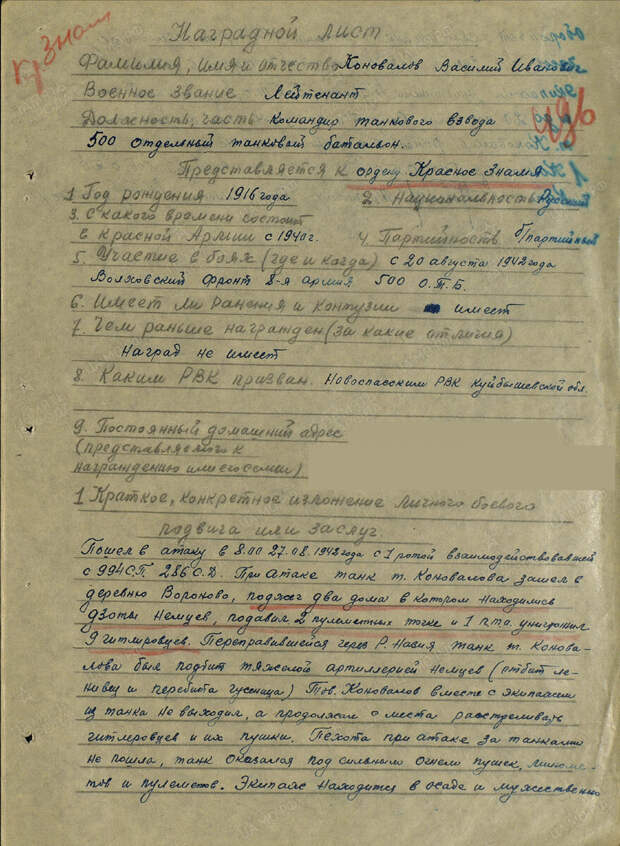 Кр. Знам
Наградной лист
Фамилия, имя и отчество Коновалов Василий Иванович
Военное звание - Лейтенант
Должность, часть командир танкового взвода
500 отдельный танковой батальон.
Представляется к ордену Красное Знамя
1 Год рождения 1916 года 2. Национальность Русский
3. С какого времени состоит
в Красной Армии с 1940 г. 4 Партийность б/партийный
5. Участие в боях (где и когда) с 20 августа 1942 года
Волховский фронт 8-я армия 500 О.Т.Б.
6. Имеет ли ранения и контузии имеет
7. Чем раньше награжден (за какие отличия)
Наград не имеет
8. Каким РВК призван. Новоспасским РВК Куйбышевской обл.
9. Постоянный домашний адрес
(представляемого к
награждению или его семьи)
1 Краткое, конкретное изложение личного боевого
подвига или заслуг.
Пошел в атаку в 8.00 27.08.1942 года с 1 ротой взаимодействовавшей
с 994 С.П. 286 С.Д. При атаке танк т. Коновалова зашел в
деревню Вороново, поджег два дома в котором находились
дзоты Немцев, подавил 2 пулеметных точки и 1 п.т.о. уничтожил
9 гитлеровцев. Переправившейся через Р. Назия танк т. Коно-
валова был подбит тяжелой артиллерией Немцев (отбит ле-
нивец и перебита гусеница) Тов. Коновалов вместе с экипажем
из танка не выходил, а продолжал с места расстреливать
гитлеровцев и их пушки. Пехота при атаке за танками
не пошла, танк оказался под сильным огнем пушек, миноме-
тов и пулеметов. Экипаж находится в осаде и мужественно